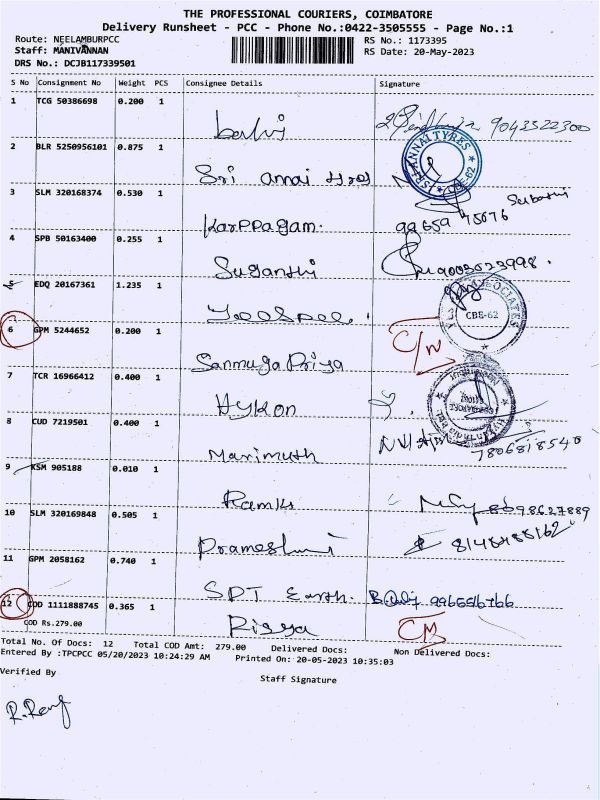 THE PROFESSIONAL COURIERS, COIMBATORE
Delivery Runsheet - PCC - Phone No.:0422-3505555 - Page No.:1
Route: NEELAMBURPCC
RS No.: 1173395
Staff: MANIVANNAN
RS Date: 20-May-2023
DRS No.: DCJB117339501
S No Consignment No Weight PCS Consignee Details Signature
1 TCG 50386698 0.200 1
9043522300
2 BLR 5250956101 0.875 1
Sri annai
SRI ANNAI TYRES CBE-62
3 SLM 320168374 0.530 1
Karppagam. 99659 75676
4 SPB 50163400 0.255 1
Suganthi 9003523998.
5 EDQ 20167361 1.235 1
CBE-62
6 GPM 5244652 0.200 1
Sanmuga Priya C/N
7 TCR 16966412 0.400 1
HYKON
8 CUD 7219501 0.400 1
Marimuth 7806818540
9 KSM 905188 0.010 1
Ramks
10 SLM 320169848 0.505 1
11 GPM 2058162 0.740 1
SPT Earth.
12 COD 1111888745 0.365 1
COD Rs.279.00
Risya
Total No. Of Docs: 12 Total COD Amt: 279.00 Delivered Docs: Non Delivered Docs:
Entered By :TPCPCC 05/20/2023 10:24:29 AM Printed On: 20-05-2023 10:35:03
Verified By
Staff Signature